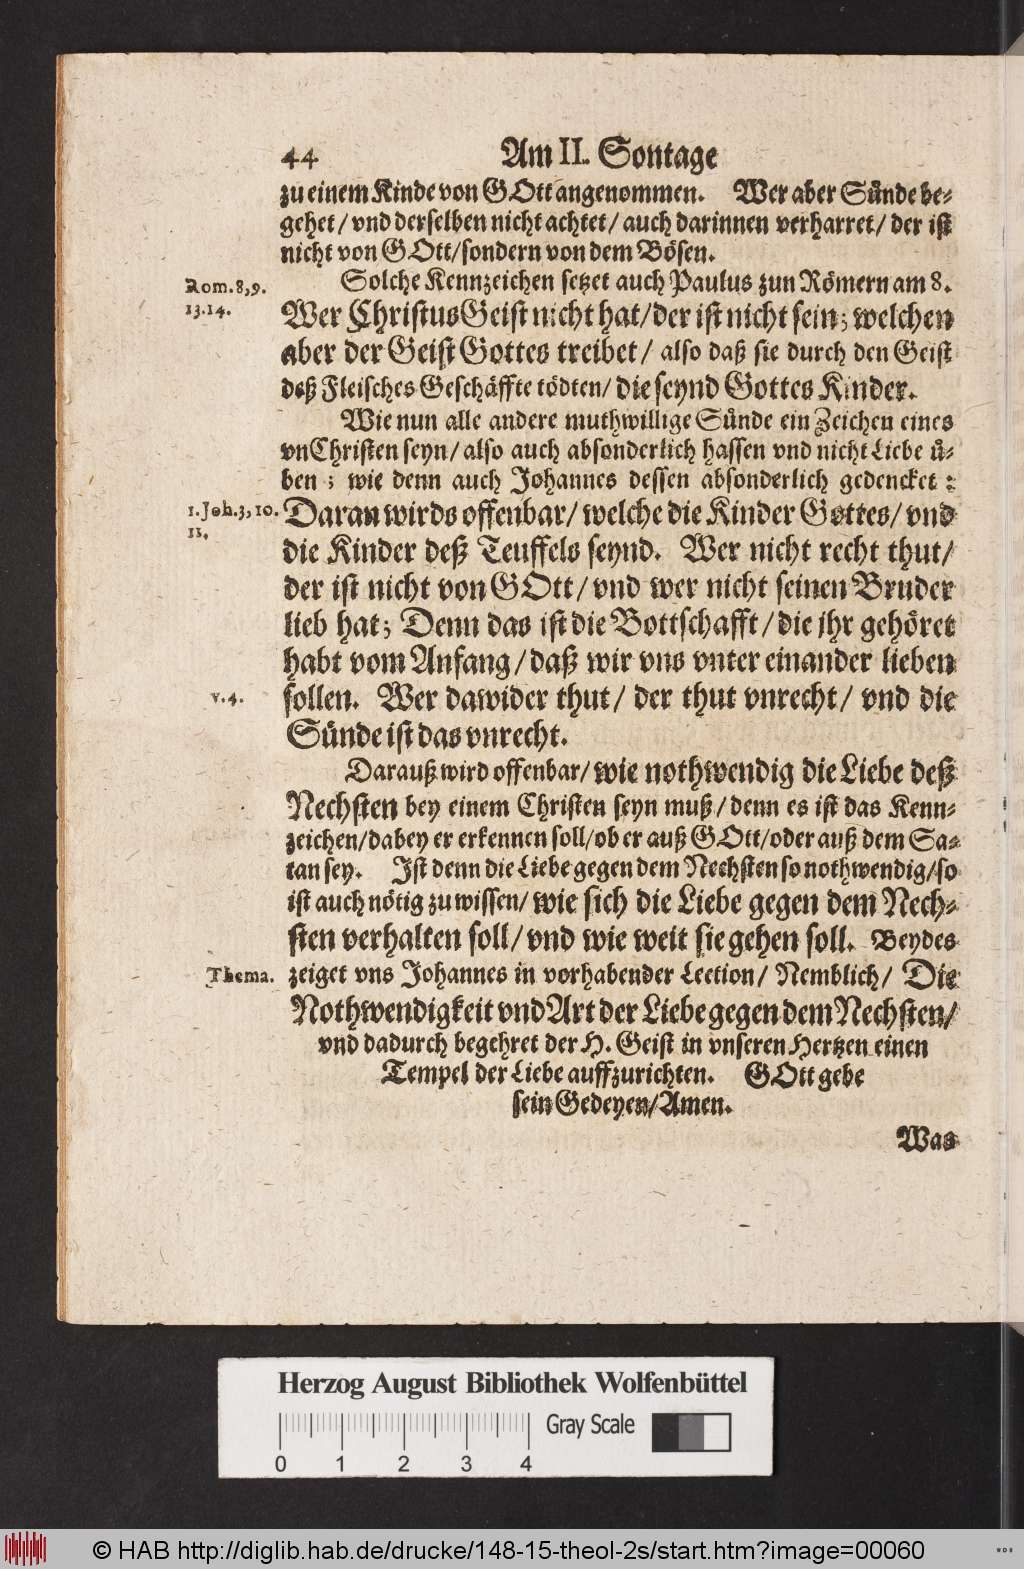 44 Am II. Sontage
zu einem Kinde von GOtt angenommen. Wer aber Sünde be-
gehet/ vnd derselben nicht achtet/ auch darinnen verharret/ der ist
nicht von GOtt/ sondern von dem Bösen.
Solche Kennzeichen setzet auch Paulus zun Römern am 8.
Rom. 8, 9.
13. 14.
Wer Christus Geist nicht hat/ der ist nicht sein; welchen
aber der Geist Gottes treibet/ also daß sie durch den Geist
deß Fleisches Geschäffte tödten/ die seynd Gottes Kinder.
Wie nun alle andere muthwillige Sünde ein Zeichen eines
vnChristen seyn/ also auch absonderlich hassen vnd nicht Liebe ü-
ben; wie denn auch Johannes dessen absonderlich gedencket:
1. Joh. 3, 10.
11.
Daran wirds offenbar/ welche die Kinder Gottes/ vnd
die Kinder deß Teuffels seynd. Wer nicht recht thut/
der ist nicht von GOtt/ vnd wer nicht seinen Bruder
lieb hat; Denn das ist die Bottschafft/ die ihr gehöret
habt vom Anfang/ daß wir vns vnter einander lieben
v. 4.
sollen. Wer dawider thut/ der thut vnrecht/ vnd die
Sünde ist das vnrecht.
Darauß wird offenbar/ wie nothwendig die Liebe deß
Nechsten bey einem Christen seyn muß/ denn es ist das Kenn-
zeichen/ dabey er erkennen soll/ ob er auß GOtt/ oder auß dem Sa-
tan sey. Ist denn die Liebe gegen dem Nechsten so nothwendig/ so
ist auch nötig zu wissen/ wie sich die Liebe gegen dem Nech-
sten verhalten soll/ vnd wie weit sie gehen soll. Beydes
Thema.
zeiget vns Johannes in vorhabender Lection/ Nemblich/ Die
Nothwendigkeit vnd Art der Liebe gegen dem Nechsten/
vnd dadurch begehret der H. Geist in vnseren Hertzen einen
Tempel der Liebe auffzurichten. GOtt gebe
sein Gedeyen/ Amen.
Was
Herzog August Bibliothek Wolfenbüttel
Gray Scale
0 1 2 3 4
© HAB http://diglib.hab.de/drucke/148-15-theol-2s/start.htm?image=00060